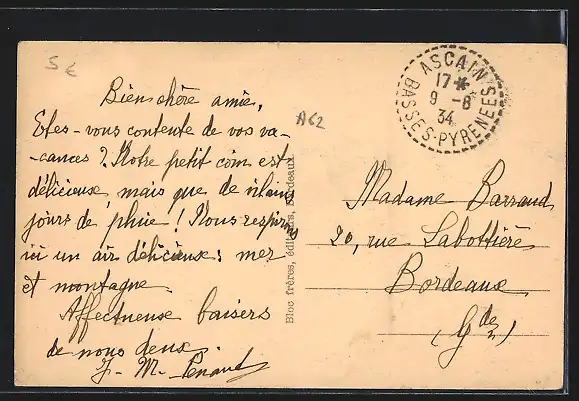 5 €
Bien chère amie,
A62
Etes-vous contente de vos va-
-cances ? Notre petit coin est
délicieux mais que de vilains
jours de pluie ! Nous respirons
ici un air délicieux : mer
et montagne.
Affectueux baisers
de nous deux.
J. M.
Bloc frères, éditeurs, Bordeaux
ASCAIN
17 *
9 -8
34
BASSES-PYRENEES
Madame Barraud
20, rue Labottière
Bordeaux
(Gde)